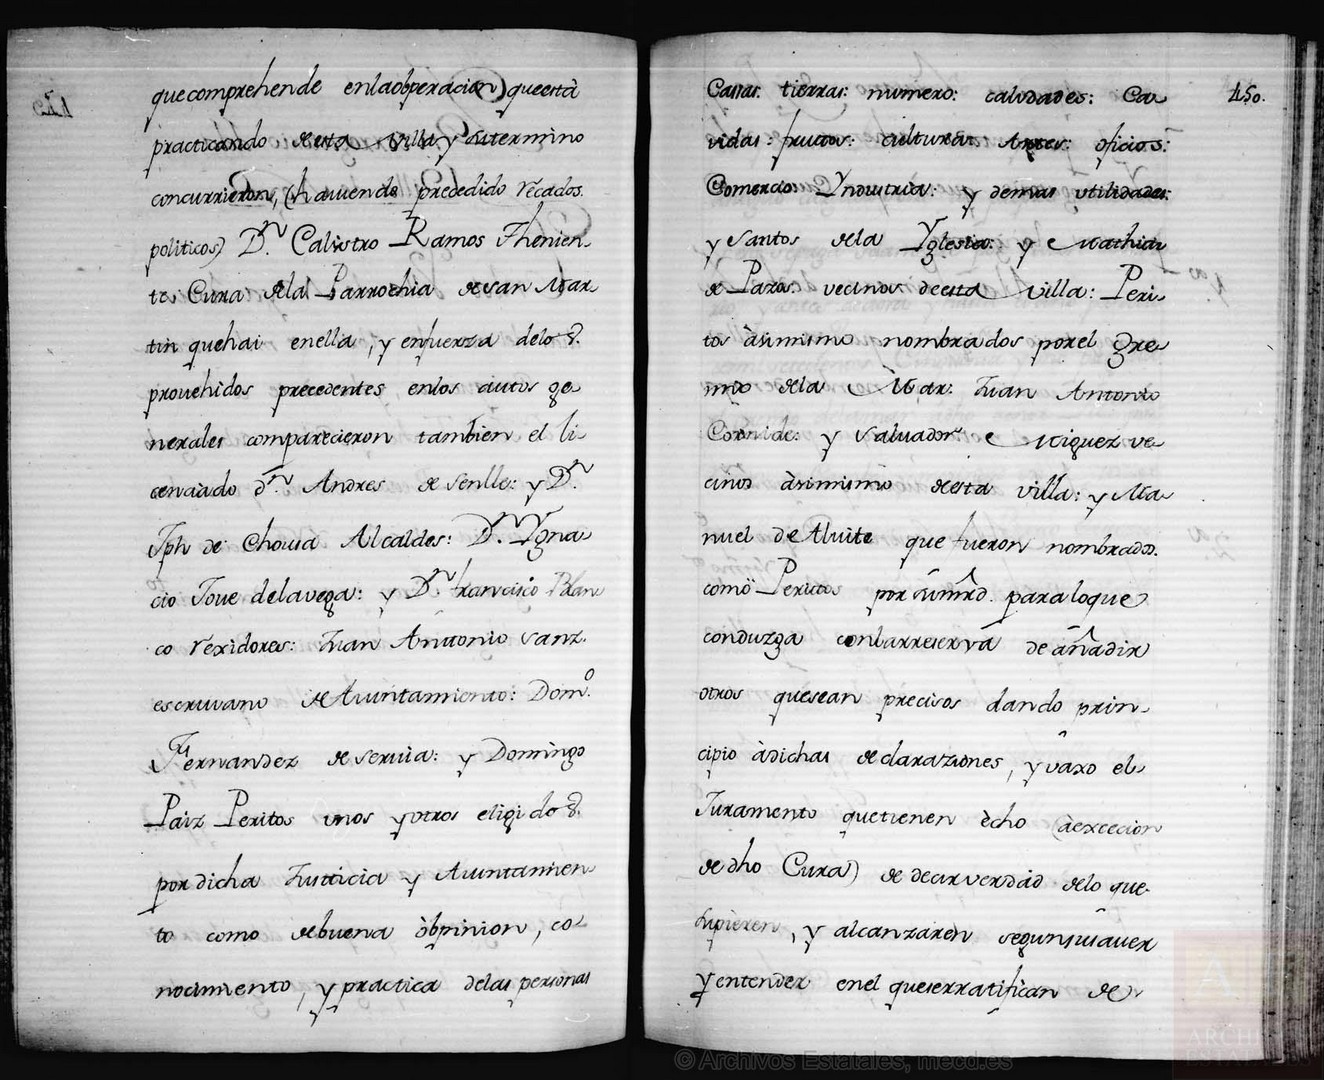 que comprehende enla obperacion que està
practicando de esta villa y sutermino
concurrieron, (haviendo precedido recados
politicos) D.n Calistro Ramos Thenien-
te Cura dela Parrochia de san Mar
tin quehai enella, y enfuerza delos
provehidos precedentes enlos autos ge
nerales comparecieron tambien el li
cenciado d.n Andres de senlle: y D.n
Jph de Chouia Alcaldes: D.n Ygna
cio Joue delavega: y D.n francisco Blan
co rexidores: Juan Antonio sanz
escriuano de Auuntamiento: Dom.o
Fernandez de seruia: y Domingo
Paiz Peritos unos y otros eligidos
por dicha Justicia y Auuntamien
to como debuena òbpinion, co
nocimiento, y practica delas personas
450.
Casas: tierras: numero: calidades: Ca
vidas: frutos: culturas Artes: oficios:
Comercio Yndustria: y demas utilidades:
y santos dela Yglesia: y Mathias
de Pazos: vecinos deesta Villa: Peri
tos àsimismo nombrados porel gre
mio dela Mar: Juan Antonio
Cornide: y saluador Miguez ve
cinos àsimismo deesta villa: y Ma
nuel de Aluite que fueron nombrados
como Peritos por sumrd. paraloque
conduzga conlarreserva de añadir
otros quesean precisos dando prin-
cipio àdichas declaraziones, y vaxo el
Juramento quetienen ècho (àexcecion
de dho Cura) de decir verdad delo que
supieren, y alcanzaren segunsuauer
y entender enel queserratifican de
© Archivos Estatales, mecd.es